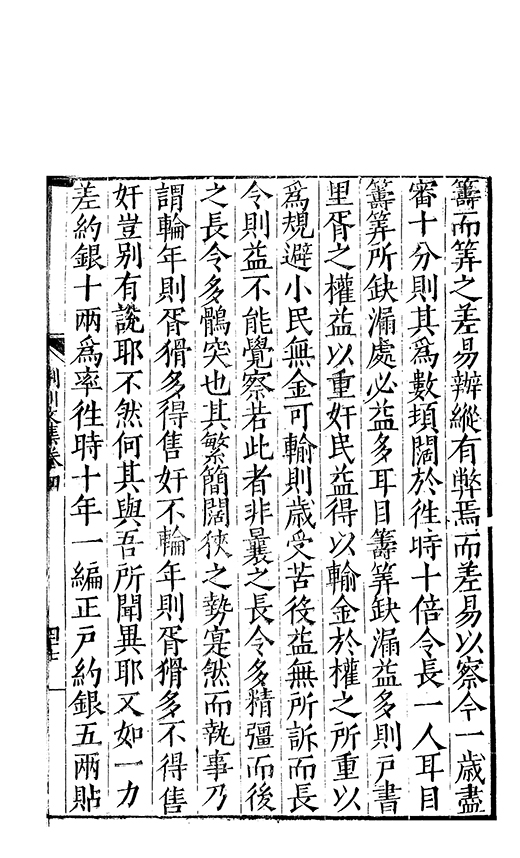 籌而筭之差易辦縱有弊焉而差易以察今一歲盡
審十分則其爲數填闊於徃時十倍令長一人耳目
籌筭所缺漏處必益多耳目籌筭缺漏益多則戸書
里胥之權益以重奸民益得以輸金於權之所重以
爲規避小民無金可輸則歲受苦役益無所訴而長
令則益不能覺察若此者非曩之長令多精彊而後
之長令多鶻突也其繁簡闊狹之勢寔然而執事乃
謂輪年則胥猾多得售奸不輪年則胥猾多不得售
奸豈别有說耶不然何其與吾所聞異耶又如一力
差約銀十兩爲率徃時十年一編正戸約銀五兩貼
荆川文集卷四